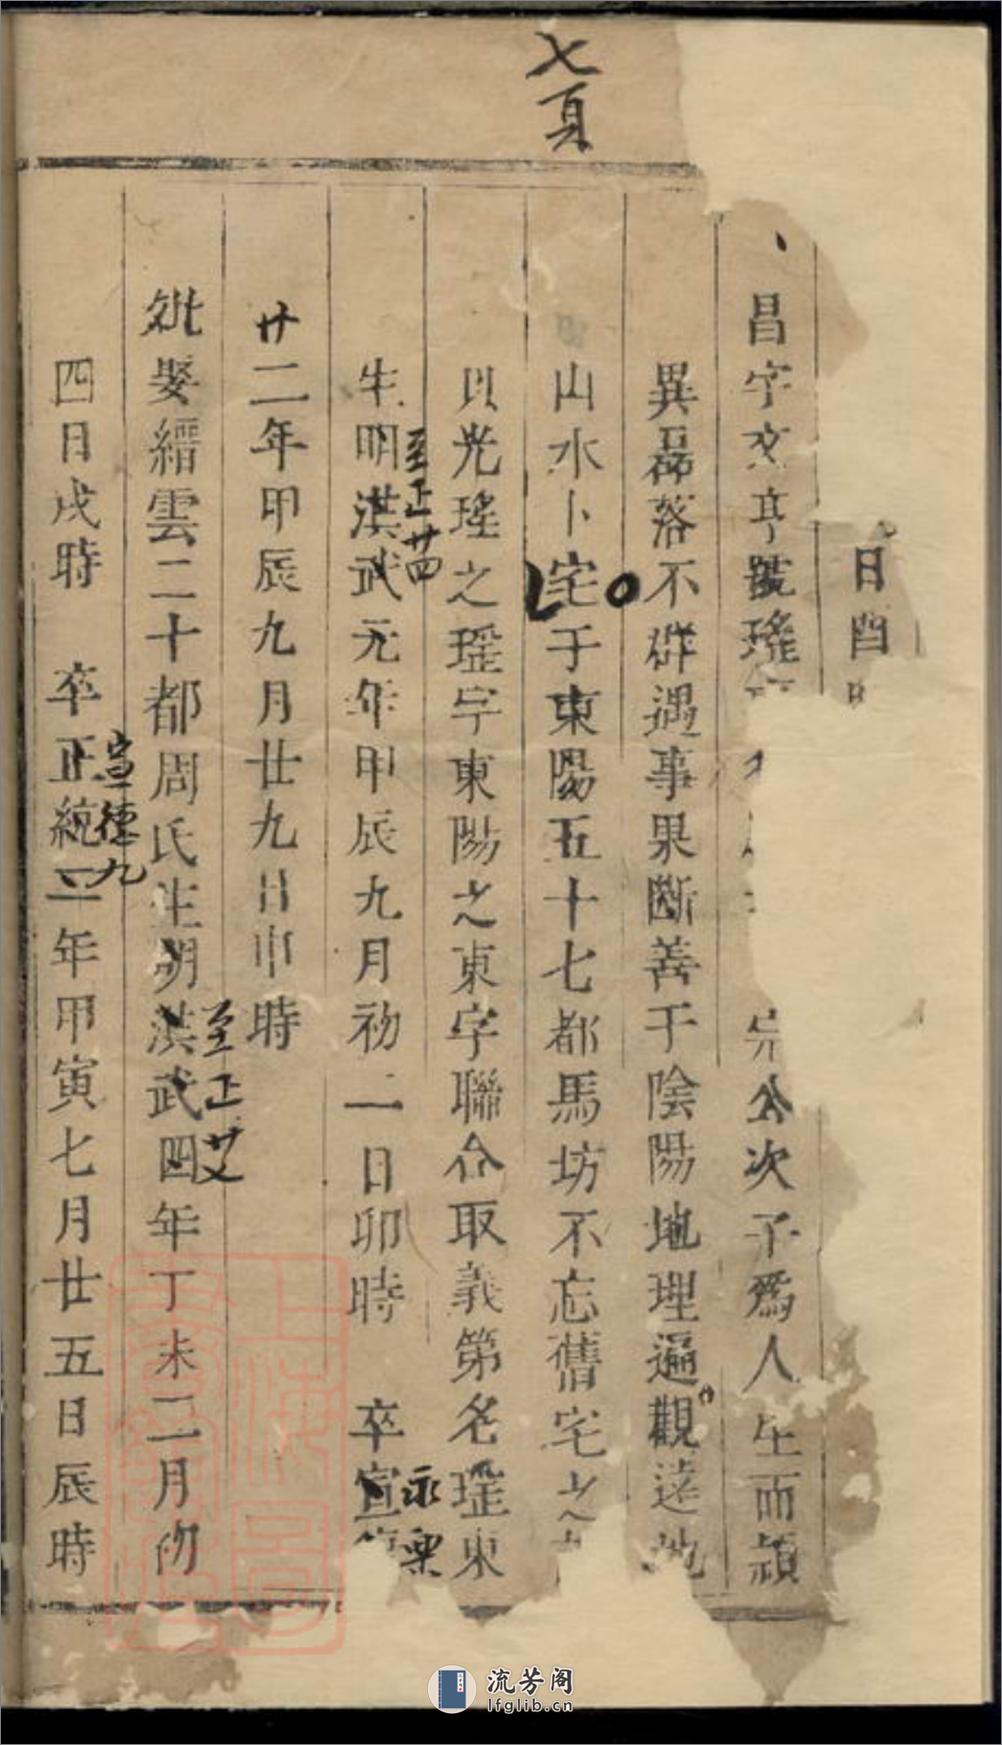 七頁
日酉時
昌字文亨號瑤 公次子為人生而穎
異磊落不群遇事果斷善于陰陽地理遍觀遠地
山水卜宅于東陽五十七都馬坊不忘舊宅之
以光瑤之瑤字東陽之東字聯合取義第名瑤東
生明洪武元年甲辰九月初二日卯時 卒宣德
至正廿四
永樂
廿二年甲辰九月廿九日申時
妣娶縉雲二十都周氏生明洪武四年丁未二月初
至正廿七
四日戌時 卒正統二年甲寅七月廿五日辰時
宣德九
流芳阁
lfglib.cn